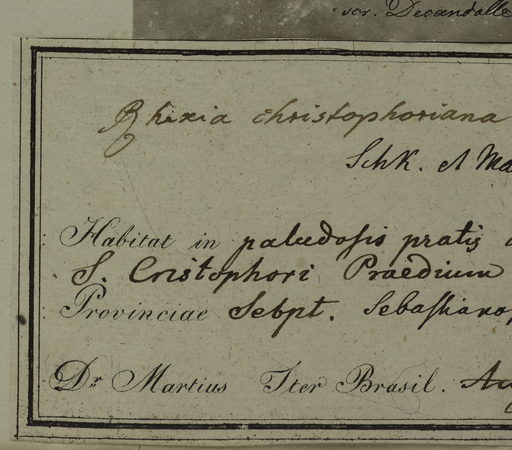 scr. Decandolle
Rhexia christophoriana
SchK. et Ma
Habitat in paludosis pratis
S. Cristophori Praedium
Provinciae Sebpt. Sebastianop
Dr Martius Iter Brasil.